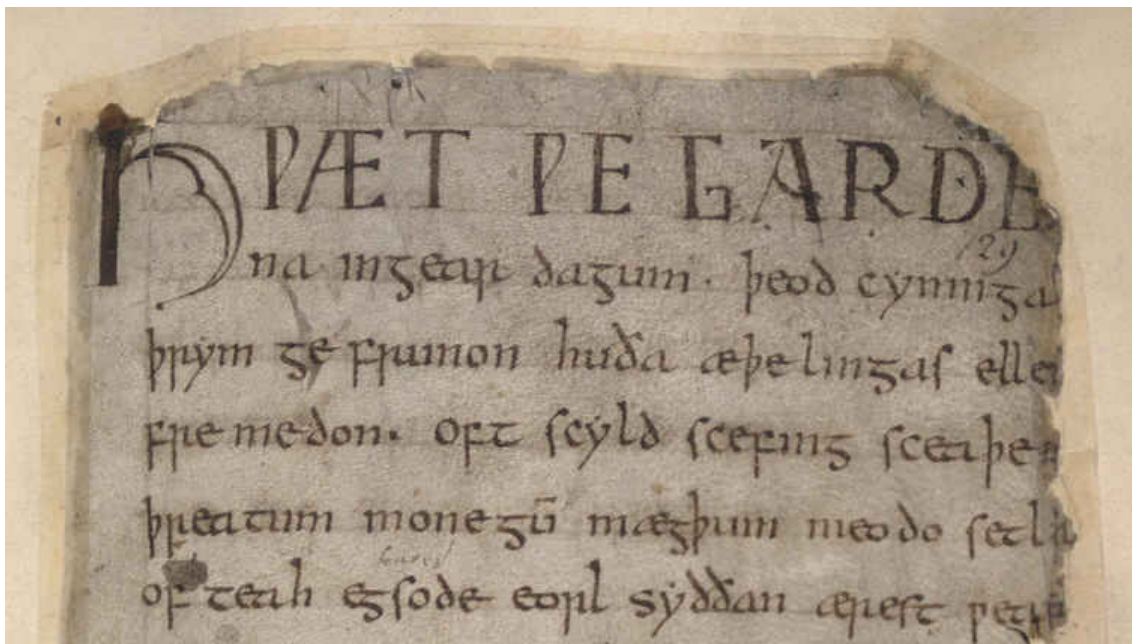 HǷÆT ǷE GARDE
na ingear dagum · þeod cyninga
129
þrym ge frunon huða æþelingas elle
fre medon. oft scyld scefing sceaþe
þreatum monegū mægþum meodo setla
of teah egsode eorl syððan ærest